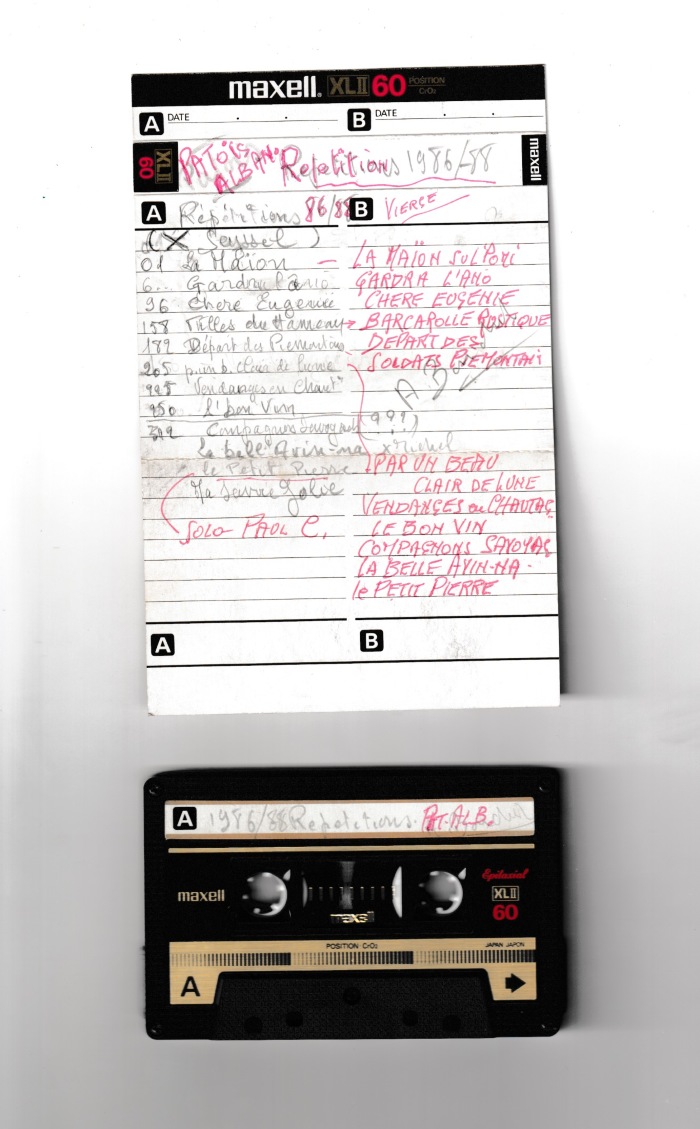 maxell. XLII 60 POSITION CrO2
A DATE . . B DATE . .
XLII 60 PATOIS ALBANOP Repetitions 1986/88 maxell
A Répétitions 86/88 B VIERGE
(X Seyssel)
01 La Maïon — LA MAÏON SUL'POUI
6... GARDRA L'ANO
96 Chere Eugenie CHERE EUGÉNIE
158 Filles du Hameau → BARCAROLLE RUSTIQUE
182 Départ des Piemontais DEPART DES
SOLDATS PIEMONTAI
265 p. un b. clair de lune
995 Vendanges en Chaut
950 L'bon Vin
392 Compagnons (???)
La belle Avin-na x Michel
le Petit Pierre PAR UN BEAU
Ma Jolie CLAIR DE LUNE
VENDANGES en CHAUTAG
SOLO PAUL C. LE BON VIN
COMPAGNONS SAVOYAG
LA BELLE AVIN-NA -
le PETIT PIERRE
A B
A 1986/88 Repetitions. PAT. ALB.
maxell
maxell
Epitaxial
XLII
60
POSITION CrO2 JAPAN JAPON
A